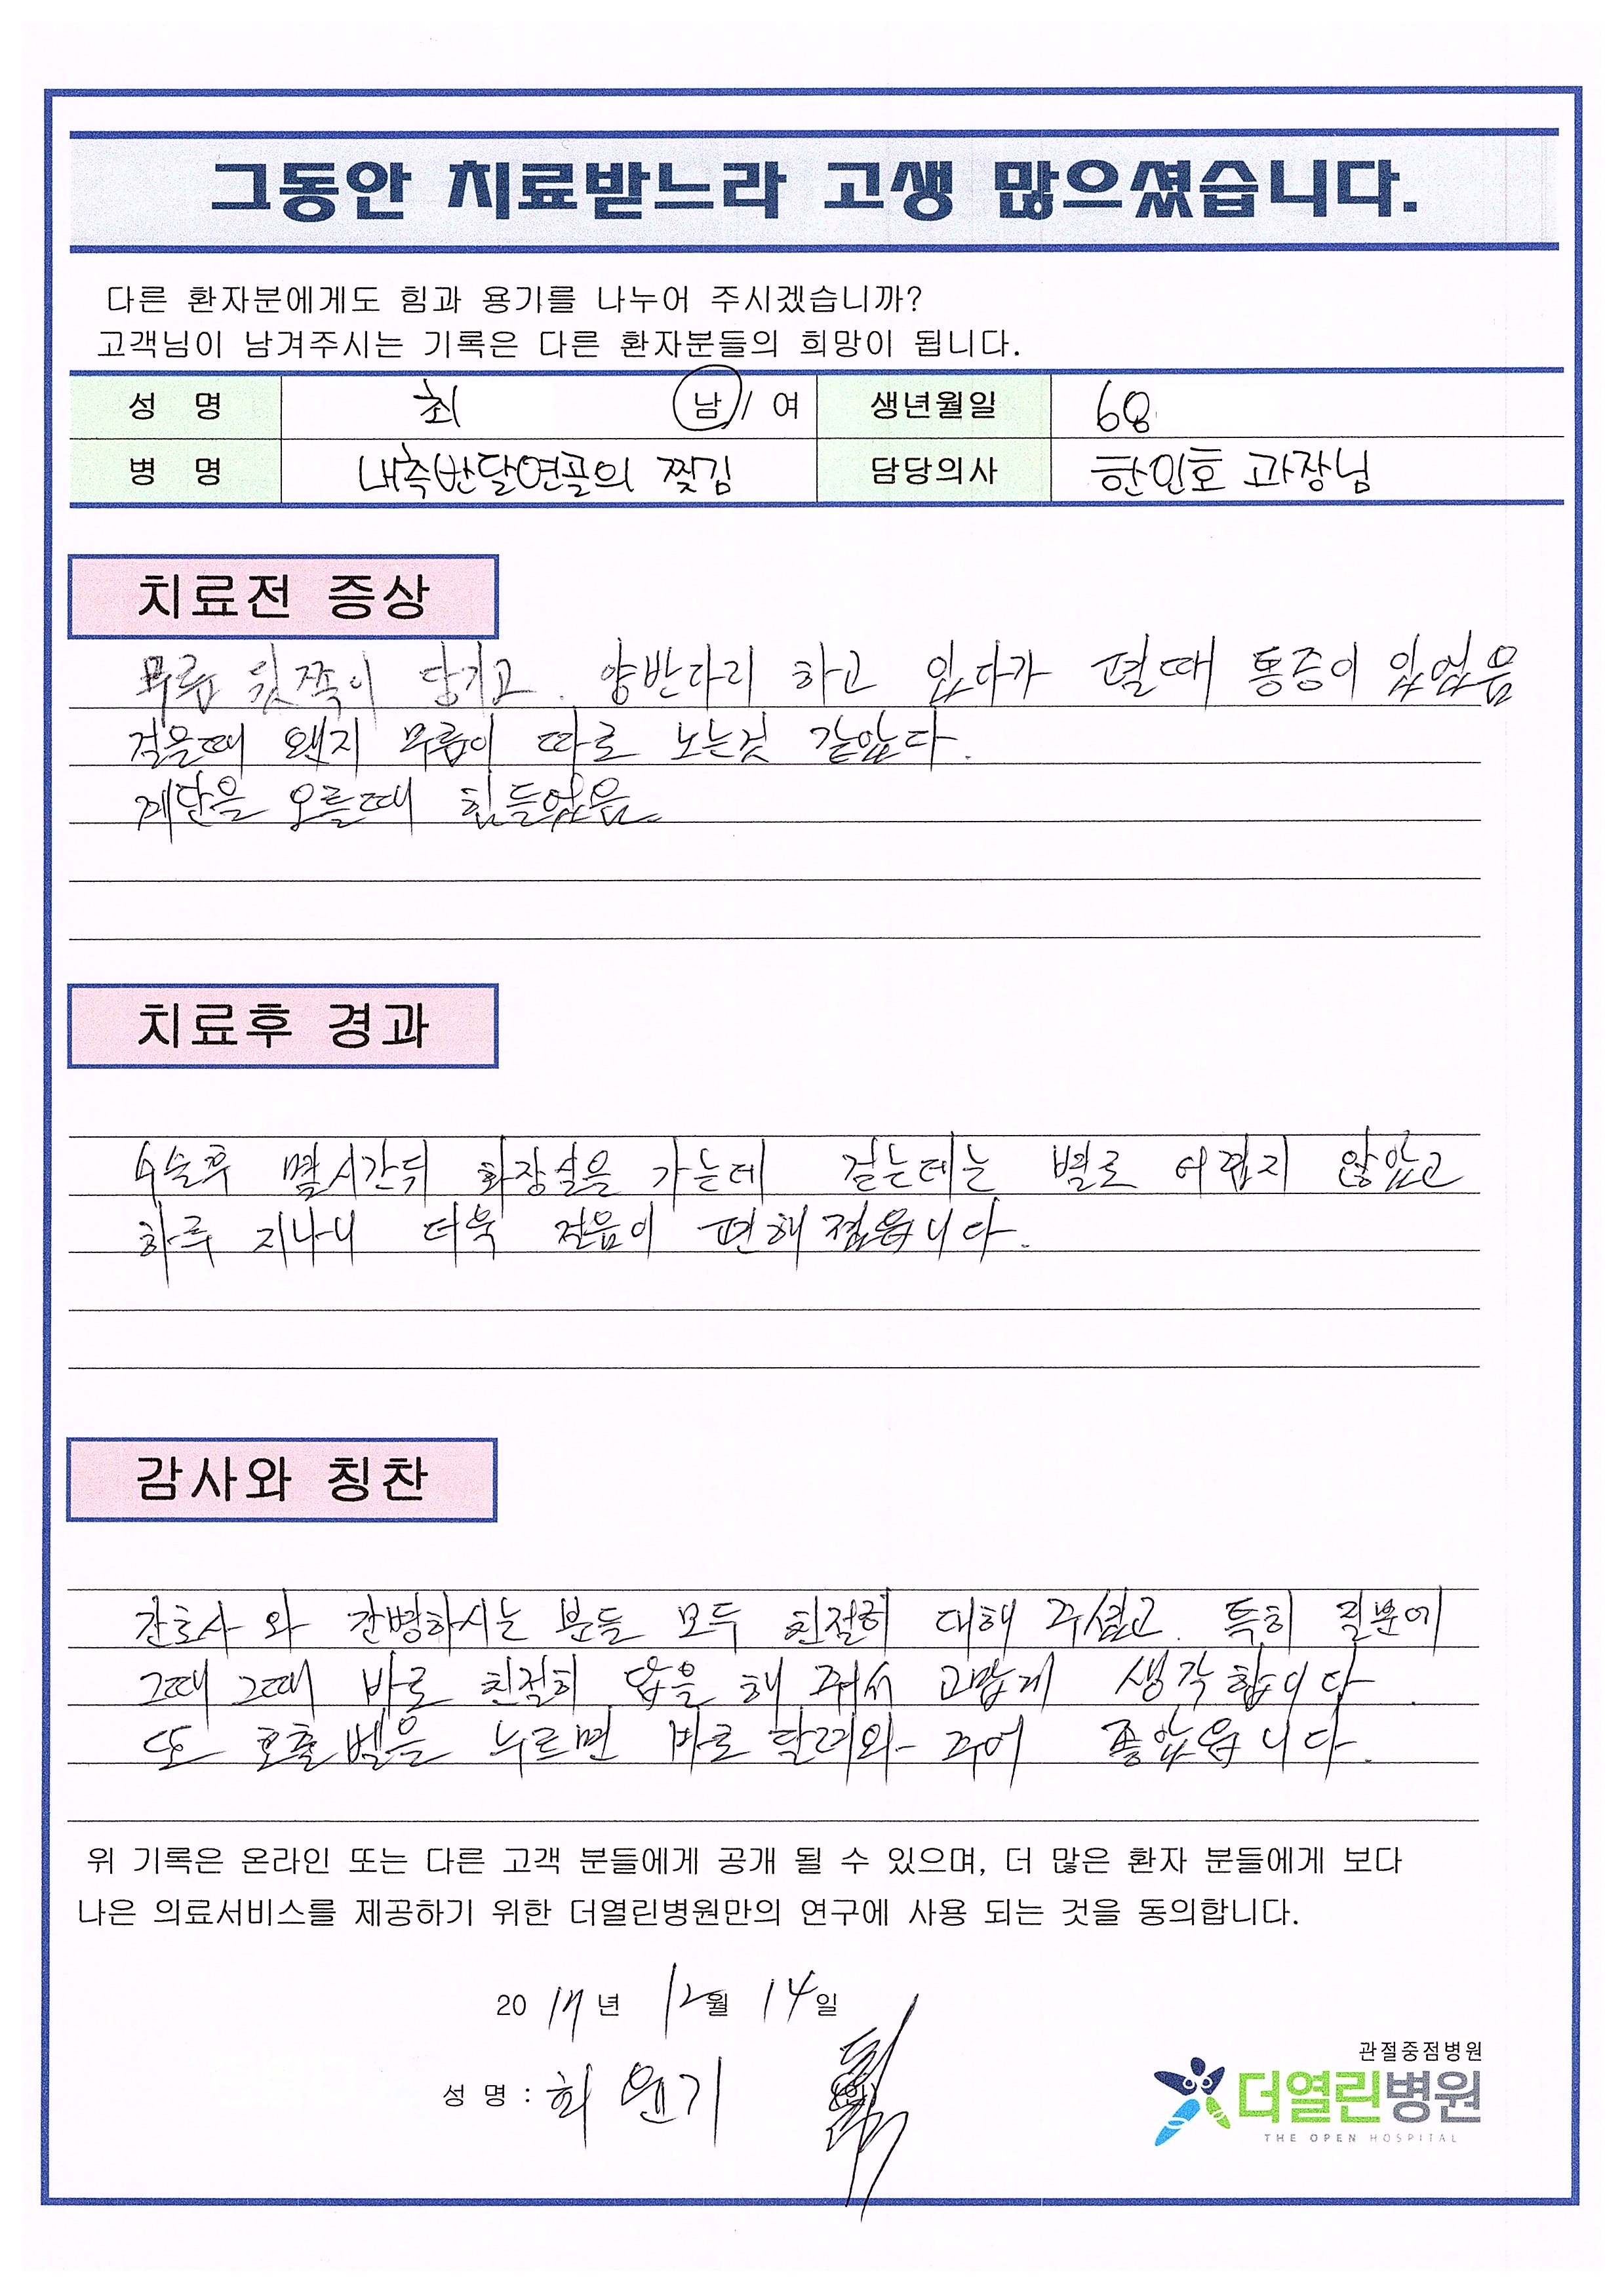 그동안 치료받느라 고생 많으셨습니다.
다른 환자분에게도 힘과 용기를 나누어 주시겠습니까?
고객님이 남겨주시는 기록은 다른 환자분들의 희망이 됩니다.
성 명 최 남 / 여 생년월일 68
병 명 내측반달연골의 찢김 담당의사 한민호 과장님
치료전 증상
무릎 뒷쪽이 당기고. 양반다리 하고 있다가 펼때 통증이 있었음
걸을때 왠지 무릎이 따로 노는것 같았다.
계단을 오를때 힘들었음.
치료후 경과
수술후 몇시간뒤 화장실을 가는데 걷는데는 별로 어렵지 않았고
하루 지나니 더욱 걸음이 편해졌읍니다.
감사와 칭찬
간호사 와 간병하시는 분들 모두 친절히 대해 주셨고. 특히 질문에
그때 그때 바로 친절히 답을 해 줘서 고맙게 생각합니다.
또 호출벨을 누르면 바로 달려와 주어 좋았읍니다.
위 기록은 온라인 또는 다른 고객 분들에게 공개 될 수 있으며, 더 많은 환자 분들에게 보다
나은 의료서비스를 제공하기 위한 더열린병원만의 연구에 사용 되는 것을 동의합니다.
2017년 12월 14일
성 명 : 최윤기
관절중점병원
더열린병원
THE OPEN HOSPITAL